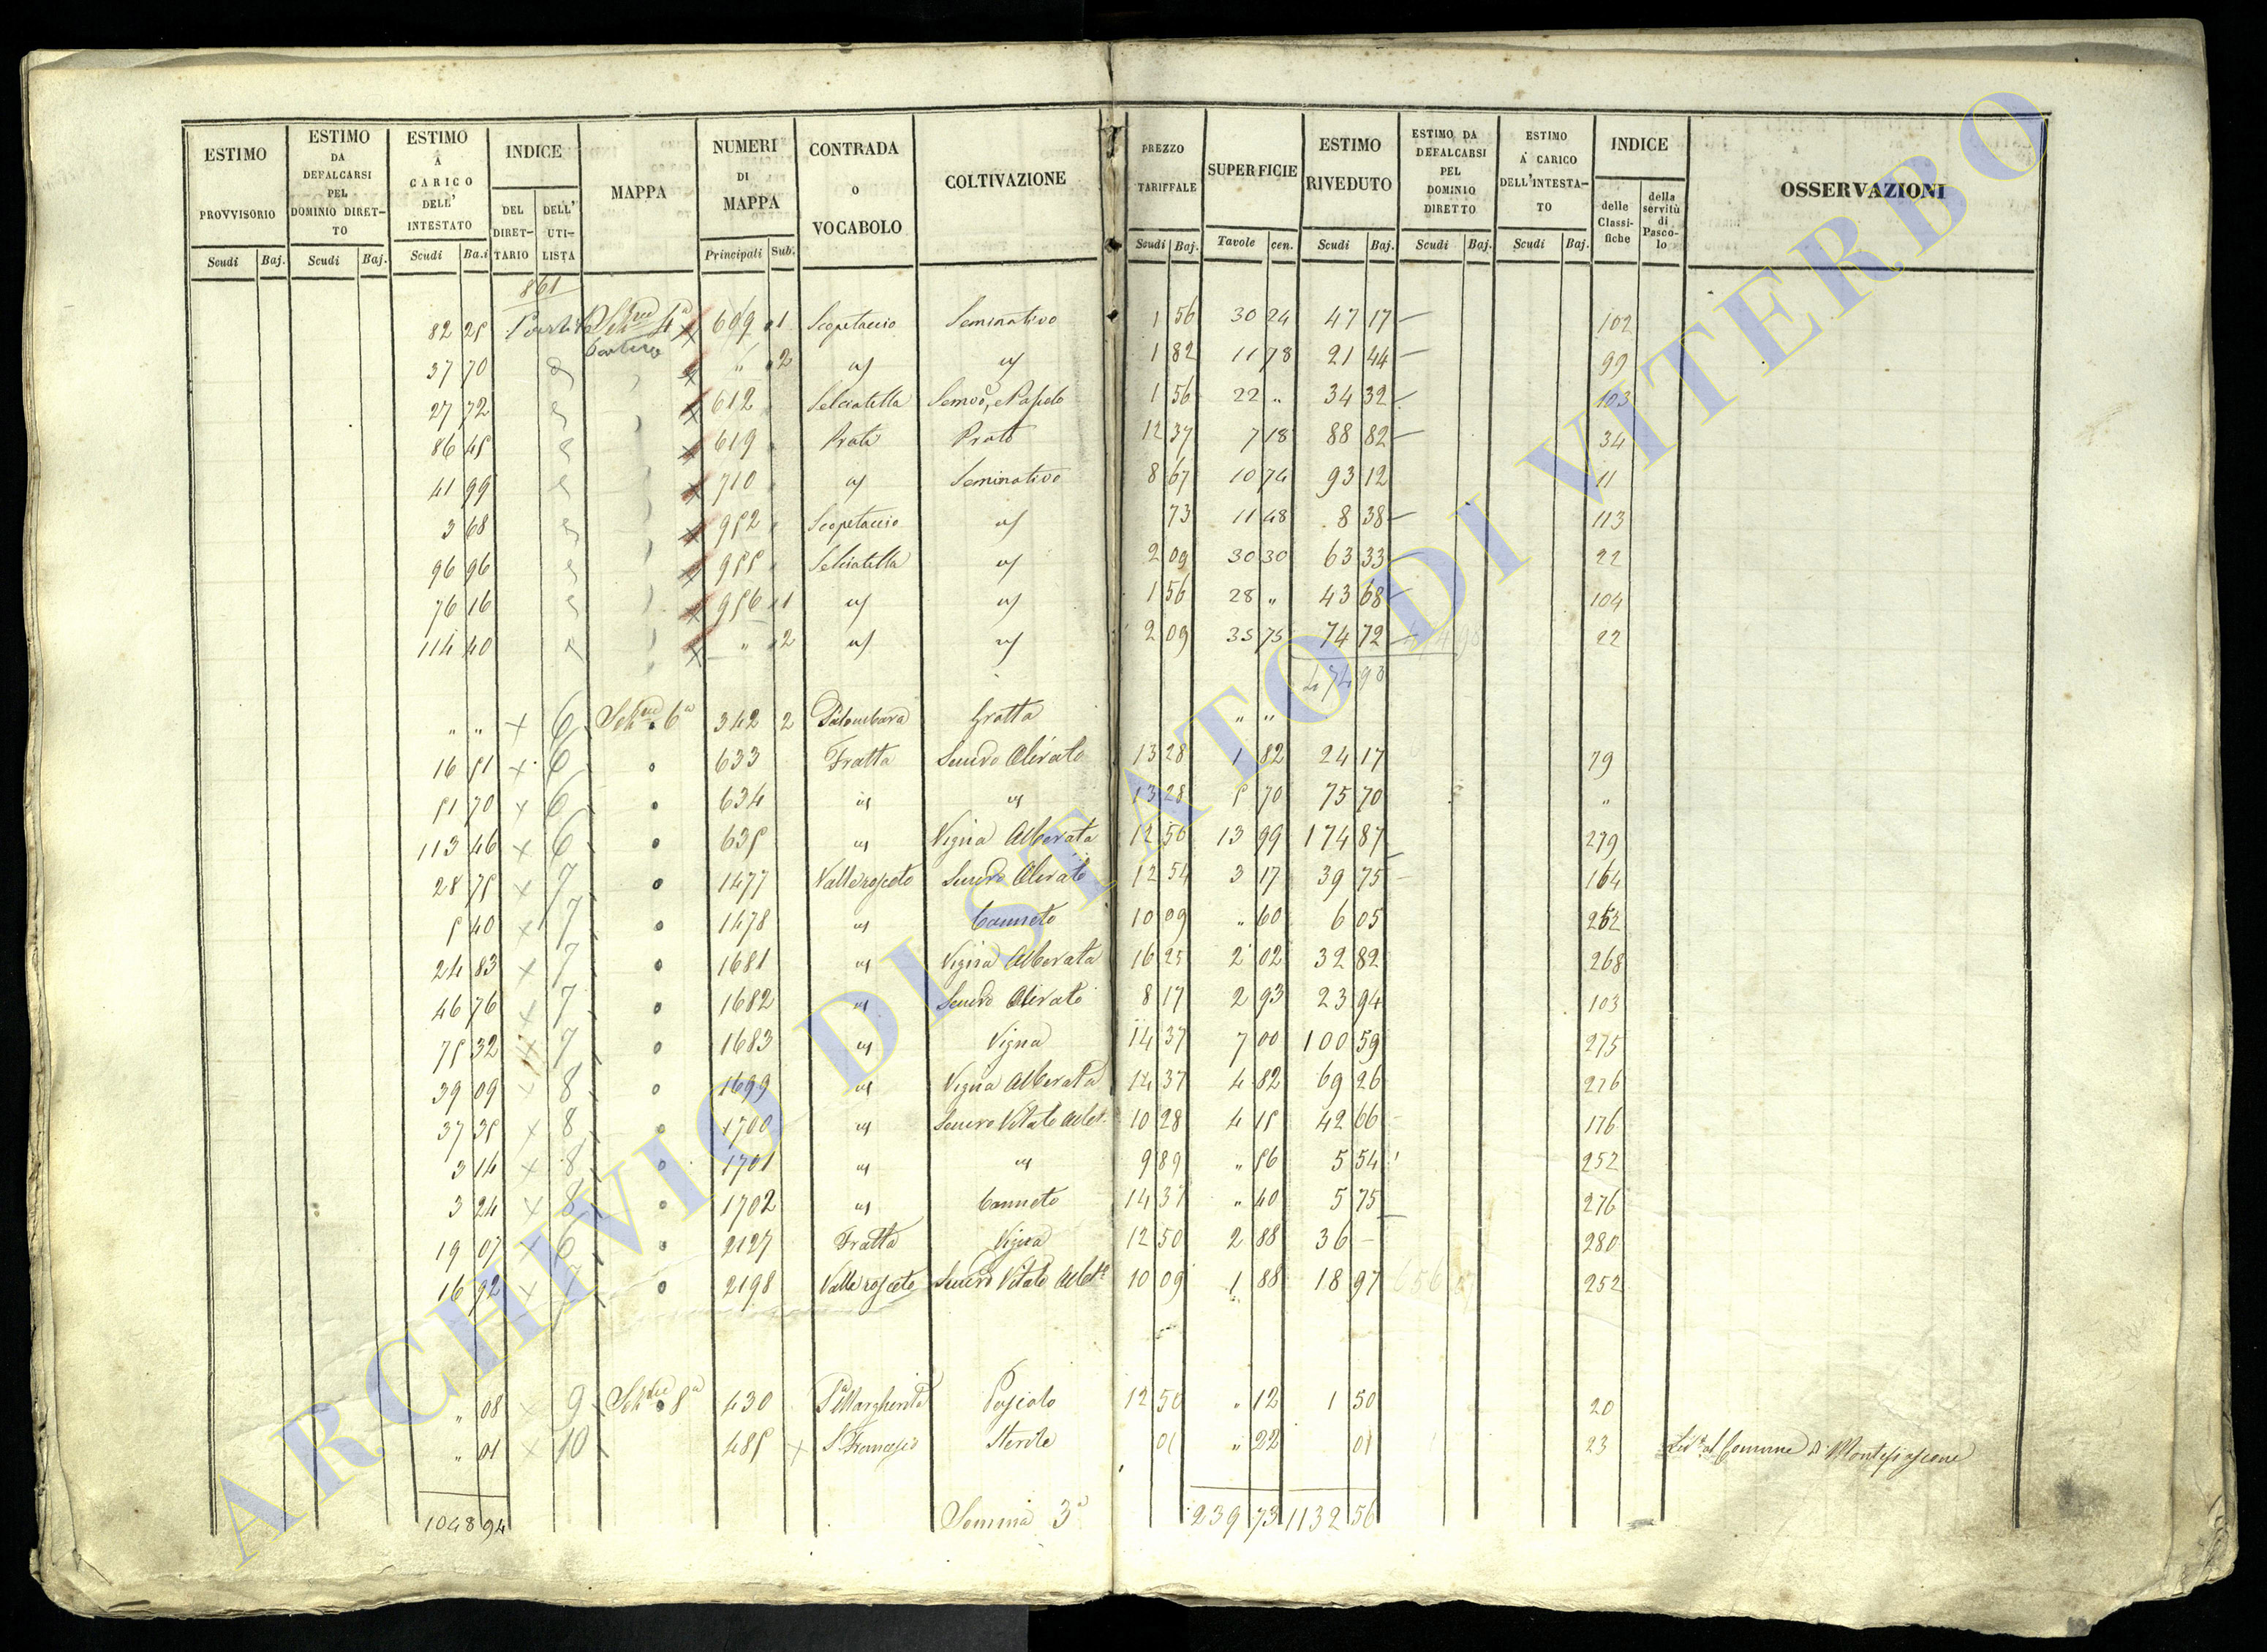 ESTIMO PROVVISORIO | ESTIMO DA DEFALCARSI PEL DOMINIO DIRET-TO | ESTIMO A CARICO DELL' INTESTATO | INDICE | MAPPA | NUMERI DI MAPPA | CONTRADA O VOCABOLO | COLTIVAZIONE | PREZZO TARIFFALE | SUPERFICIE | ESTIMO RIVEDUTO | ESTIMO DA DEFALCARSI PEL DOMINIO DIRETTO | ESTIMO A CARICO DELL'INTESTA-TO | INDICE | OSSERVAZIONI
DEL DIRET-TARIO | DELL' UTI-LISTA | delle Classi-fiche | della servitù di Pasco-lo
Scudi | Baj. | Scudi | Baj. | Scudi | Ba.i | Principali | Sub. | Scudi | Baj. | Tavole | cen. | Scudi | Baj. | Scudi | Baj. | Scudi | Baj.
861
82 25 | 4a | 609 | 1 | Scopetaccio | Seminativo | 1 56 | 30 24 | 47 17 | 102
37 70 | " | 2 | 1 82 | 11 78 | 21 44 | 99
27 72 | 612 | Selciatella | 1 56 | 22 " | 34 32 | 103
86 45 | 619 | Prata | Prato | 12 37 | 7 18 | 88 82 | 34
41 99 | 710 | Seminativo | 8 67 | 10 74 | 93 12 | 11
3 68 | 952 | Scopetaccio | 73 | 11 48 | 8 38 | 113
96 96 | 955 | Selciatella | 2 09 | 30 30 | 63 33 | 22
76 16 | 956 | 1 | 1 56 | 28 " | 43 68 | 104
114 40 | " | 2 | 2 09 | 35 75 | 74 72 | 22
474 98
" " | × | 6 | 6a | 342 | 2 | Palombara | Grotta | " "
16 51 | × | 6 | 633 | Fratta | Semvo Olivato | 13 28 | 1 82 | 24 17 | 79
51 70 | × | 6 | 634 | 13 28 | 5 70 | 75 70 | "
113 46 | × | 6 | 635 | Vigna Alberata | 12 50 | 13 99 | 174 87 | 279
28 75 | × | 7 | 1477 | Valle rosceto | Semvo Olivato | 12 54 | 3 17 | 39 75 | 164
5 40 | × | 7 | 1478 | Canneto | 10 09 | " 60 | 6 05 | 252
24 83 | × | 7 | 1681 | Vigna Alberata | 16 25 | 2 02 | 32 82 | 268
46 76 | × | 7 | 1682 | Semvo Olivato | 8 17 | 2 93 | 23 94 | 103
75 32 | × | 7 | 1683 | Vigna | 14 37 | 7 00 | 100 59 | 275
39 09 | × | 8 | 1699 | Vigna Alberata | 14 37 | 4 82 | 69 26 | 276
37 35 | × | 8 | 1700 | Semvo Vitato | 10 28 | 4 15 | 42 66 | 176
3 14 | × | 8 | 1701 | 9 89 | " 56 | 5 54 | 252
3 24 | × | 8 | 1702 | Canneto | 14 37 | " 40 | 5 75 | 276
19 07 | × | 6 | 2127 | Fratta | Vigna | 12 50 | 2 88 | 36 – | 280
16 92 | × | 7 | 2198 | Valle rosceto | Semvo Vitato | 10 09 | 1 88 | 18 97 | 252
" 08 | × | 9 | 8a | 430 | Sa Margherita | Pascolo | 12 50 | " 12 | 1 50 | 20
" 01 | × | 10 | 485 | × | S Francesco | Sterile | 01 | " 22 | 01 | 23 | al Comune di Montefiascone
1048 94 | Somma 3a | 239 73 | 1132 56
ARCHIVIO DI STATO DI VITERBO